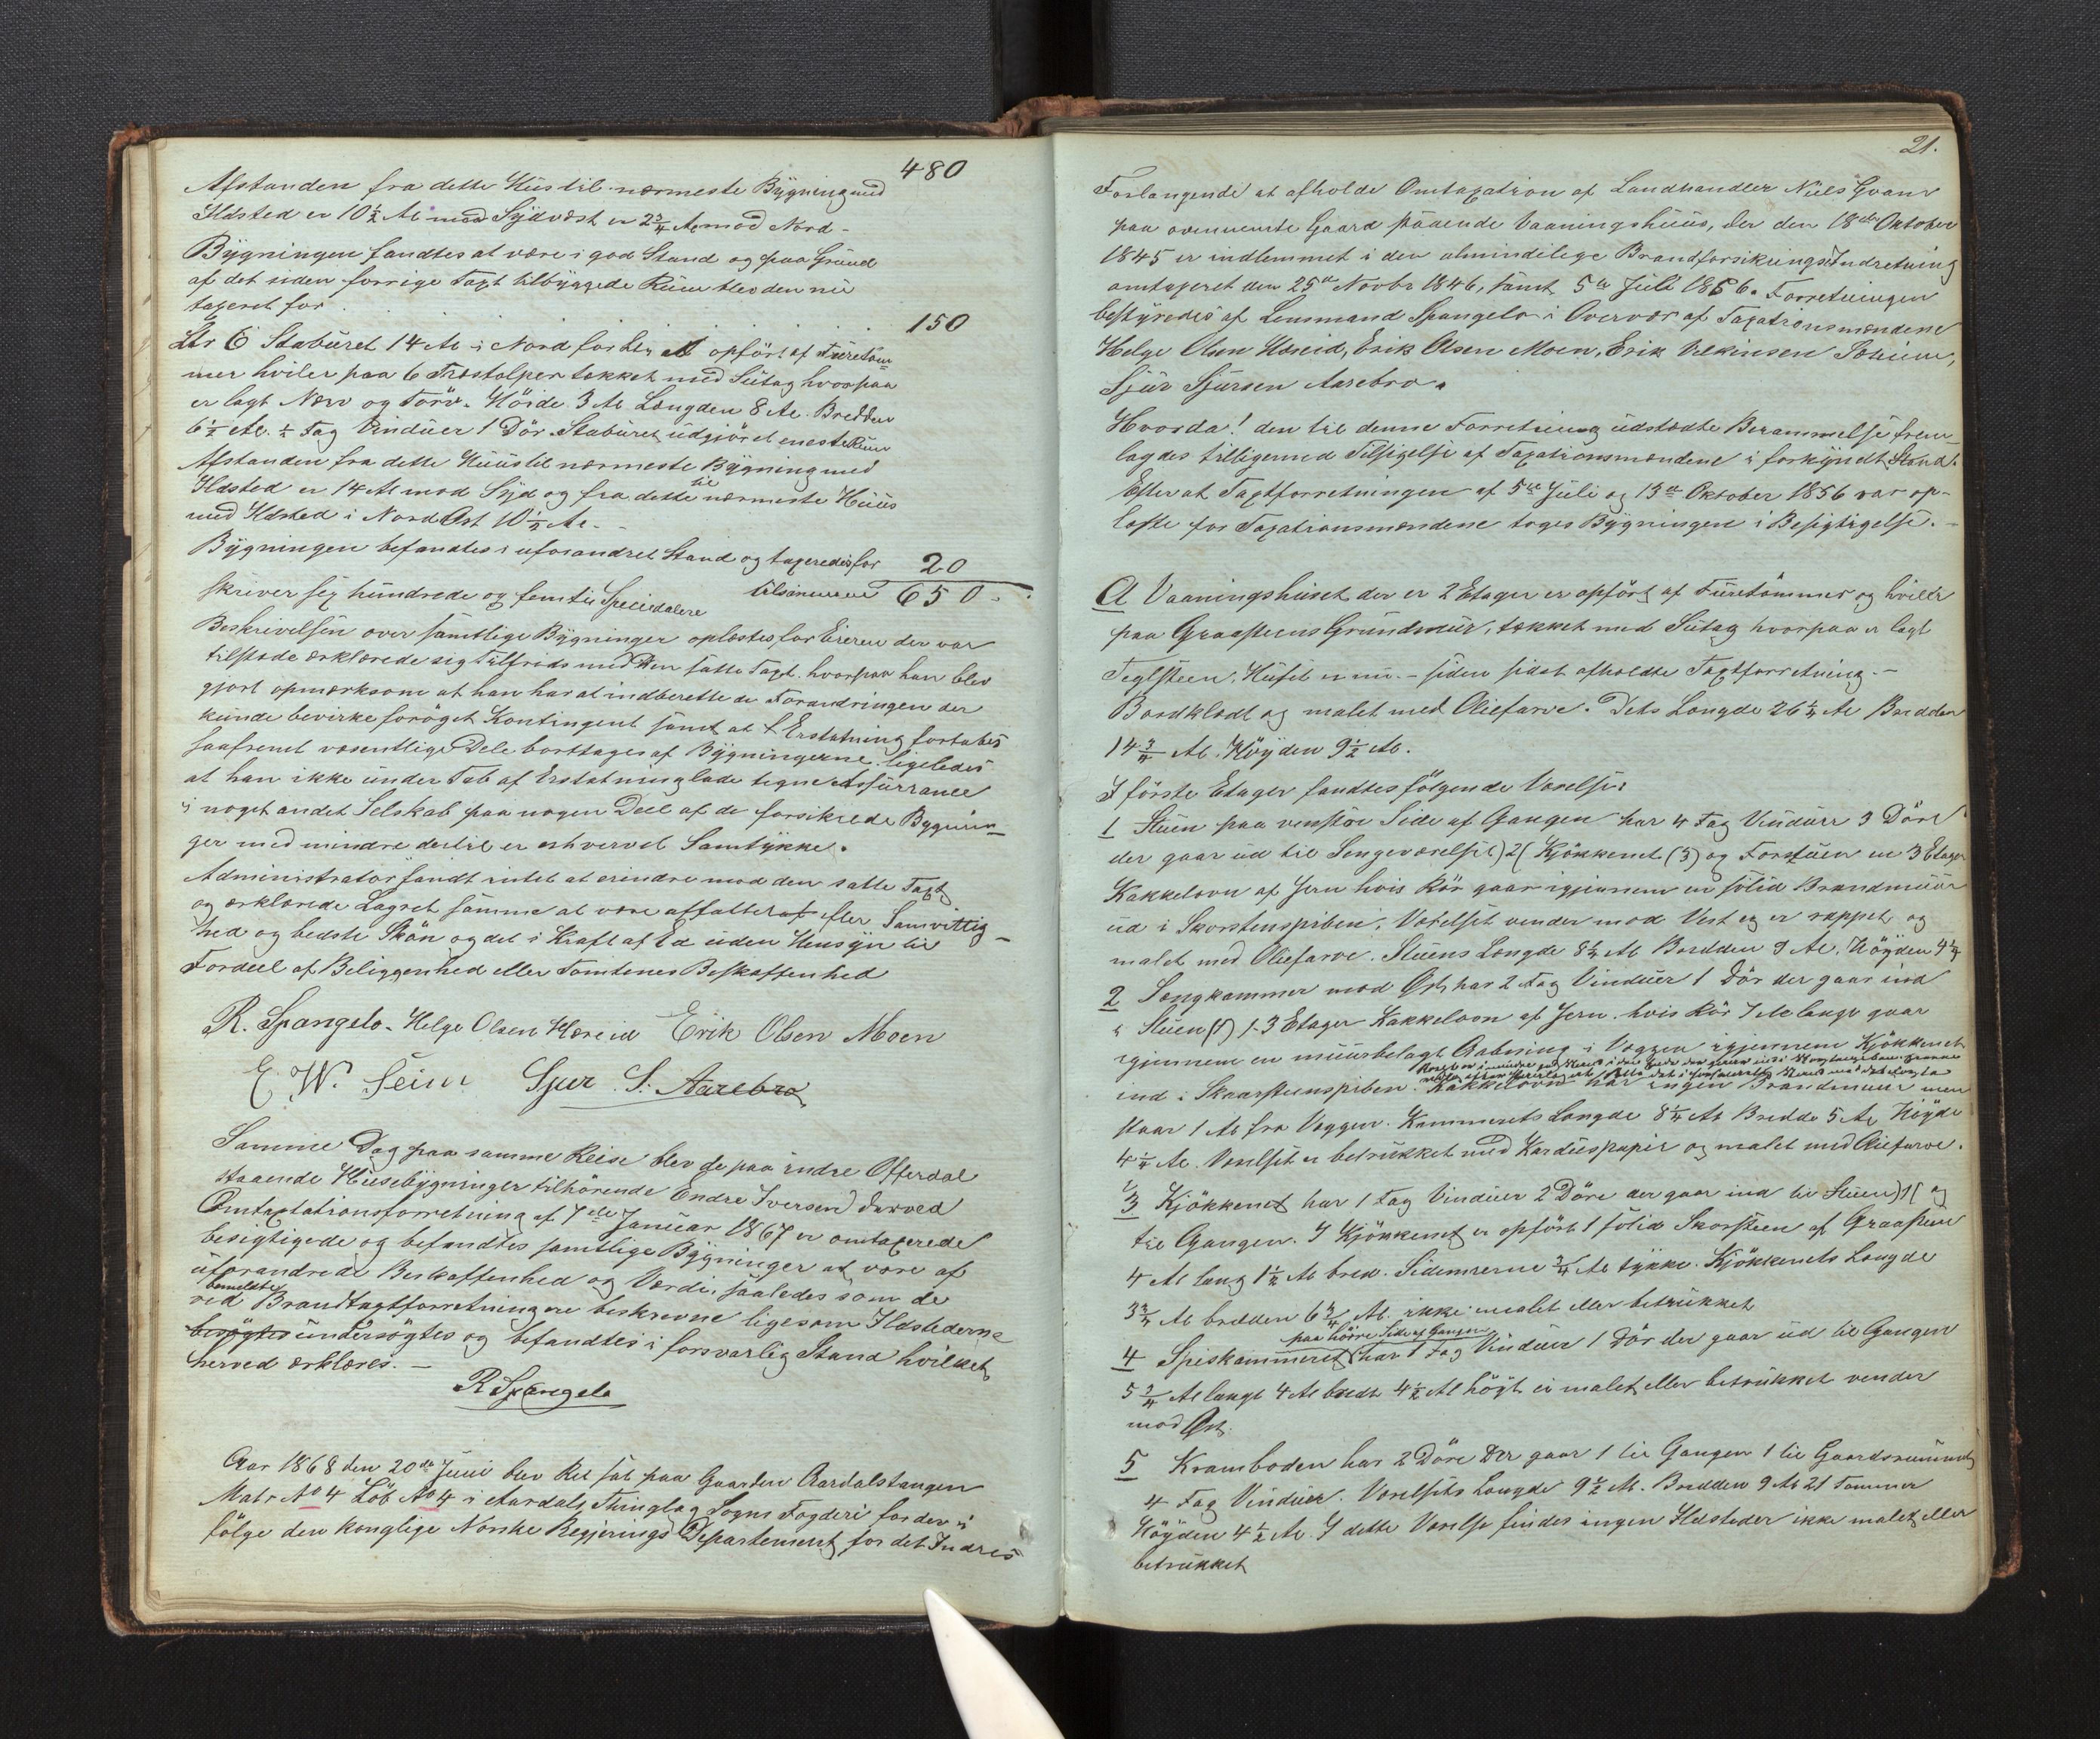 480
Afstanden fra dette Hus til nærmeste Bygning med
Ildsted er 10 1/2 Al mod Sydvest er 2 3/4 Al mod Nord-
Bygningen fandtes at være i god Stand og paa Grund
af det siden forrige Taxt tilbyggede Rum blev den nu
taxeret for 150
Ltr C Stabüret 14 Al i Nord for Ltr A opfört af Füretöm-
mer hviler paa 6 Træstolper tækket med Sutag hvorpaa
er lagt Næv og Törv. Höide 3 Al Længden 8 Al. Bredden
6 1/2 Al. 1/2 Fag Vindüer 1 Dör. Stabüret üdgjör et eneste Rüm
Afstanden fra dette Hüüs til nærmeste Bygning med
Ildsted er 14 Al mod Syd og fra dette til nærmeste Hüüs
med Ildsted i Nord Øst 10 1/2 Al. -
Bygningen befandtes i uforandret Stand og taxeredes for 20
tilsammen 650 -
skriver sex hündrede og femti Speciedalere
Beskrivelsen over samtlige Bygninger oplæstes for Eieren der var
tilstæde erklærede sig tilfreds med den satte Taxt. hvorpaa han blev
gjort opmærksom at han har at indberette de Forandringer der
kunde bevirke foröget Kontingent samt at Erstatning fortabes
saafremt væsentlige Dele borttages af Bygningerne ligeledes
at han ikke ünder Tab af Erstatning lade tegne Assürrance
i noget andet Selskab paa nogen Deel af de forsikrede Bygnin-
ger med mindre dertil er erhvervet Samtykke.
Administrator fandt intet at erindre mod den satte Taxt
og erklærede Lagret samme at være affattet efter Samvittig-
hed og bedste Skön og det i Kraft af Ed uden Hensyn til
Fordeel af Beliggenhed eller Tomtenes Beskaffenhed
R. Spangelo. Helge Olsen Hæreid Erik Olsen Moen
E. W. Seim Sjur S. Aarebro
Samme Dag paa samme Reise blev de paa indre Offerdal
staaende Hüsebygninger tilhörende Endre Iversen der ved
Omtaxtationsforretning af 7de Januar 1867 er omtaxerede
besigtigede og befandtes samtlige Bygninger at være af
üforandrede Beskaffenhed og Værdi, saaledes som de
ved bemeldte Brandtaxtforretninger beskrevne ligesom Ildstederne
besögtes ündersögtes og befandtes i forsvarlig Stand hvilket
herved erklæres. -
R Spangelo
Aar 1868 den 20de Juni blev Ret sat paa Gaarden Aardalstangen
Matr No 4 Löb No 4 i Aardals Thinglag Sogns Fogderi for der i
fölge den konglige Norske Regjerings Departement for det Indres
21.
Forlangende at afholde Omtaxation af Landhandler Niels Qvam
paa ovennævnte Gaard staaende Vaaningshüüs, der den 18de Oktober
1845 er indlemmet i den almindelige Brandforsikrings Indretning
omtaxeret den 25de Novbr 1846, samt 5te Juli 1856. Forretningen
bestyredes af Lensmand Spangelo i Overvær af Taxationsmændene
Helge Olsen Hæreid, Erik Olsen Moen, Erik Vilkinsen Seim,
Sjür Sjürsen Aarebro.
Hvorda! den til denne Forretning üdstædte Berammelse frem-
lagdes tilligemed Tilsigelse af Taxationsmændene i forkyndt Stand.
Efter at Taxtforretningen af 5te Juli og 13de Oktober 1856 var op-
læste for Taxationsmændene toges Bygningen i Besigtigelse. -
A Vaaningshuset der er 2 Etager er opfört af Füretömmer og hviler
paa Graasteens Grundmür, tækket med Sutag hvorpaa er lagt
Teglsteen. Huset er nu - siden sidst afholdte Taxtforretning -
Bordklædt og malet med Oliefarve. Dets Længde 26 1/4 Al Bredden
14 3/4 Al. Höyden 9 1/2 Al.
I förste Etage fandtes fölgende Værelser
1 Stuen paa venstre Side af Gangen har 4 Fag Vindüer 3 Döre
der gaar ud til Sengeværelset)2( Kjökkenet (3) og Forstuen en 3 Etager
Kakkelovn af Jern hvis Rör gaar igjennem en solid Brandmüür
ud i Skorstenspiben. Værelset vender mod Vest og er rappet og
malet med Oliefarve. Stuens Længde 8 1/4 Al Bredden 9 Al. Höyden 4 1/4
2 Sengkammer mod Øst, har 2 Fag Vindüer 1 Dör der gaar ind
i Stuen (1) 1-3 Etager Kakkelovn af Jern hvis Rör 7 Al lange gaar
igjennem en müürbelagt Aabning i Væggen igjennem Kjökkenet
ind i Skaarsteenspiben. Kakkelovnen har ingen Brandmuur men
staar 1 Al fra Væggen. Kammerets Længde 8 1/4 Al Bredde 5 Al Höyde
4 1/4 Al. Værelset er betrükket med Kardüspapir og malet med Oliefarve.
3 Kjökkenet har 1 Fag Vindüer 2 Döre der gaar ind til Stuen)1( og
til Gangen. I Kjökkenet er opfört 1 solid Skorsteen af Graasteen
4 Al lang 1 1/2 Al bred. Sidemurene 3/4 Al tykke. Kjökkenets Længde
3 3/4 Al bredden 6 3/4 Al. ikke malet eller betrükket
4 Spiskammeret paa höire Side af Gangen har 1 Fag Vindüer 1 Dör der gaar üd til Gangen
5 3/4 Al langt 4 Al bredt 4 1/2 Al höyt ei malet eller betrükket vender
mod Øst.
5 Kramboden har 2 Döre der gaar 1 til Gangen 1 til Gaardsrummet
4 Fag Vindüer. Værelsets Længde 9 1/2 Al. Bredden 9 Al 21 Tommer
Höyden 4 1/2 Al. I dette Værelse findes ingen Ildsteder ikke malet eller
betrükket